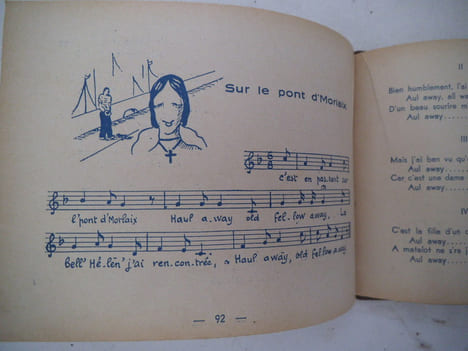 Sur le pont d'Morlaix
6
8
c'est en pas.sant sur
l'pont d'Morlaix Haul a.way old fel.low away, La
Bell' Hé.lèn' j'ai ren.con.trée, Haul away, old fel.low away.
— 92 —
II
Bien humblement, j'ai
Aul away, all
D'un beau sourire
Aul away
III
Mais j'ai bien vu qu'
Aul away
Car c'est une dame
Aul away
IV
C'est la fille d'un
Aul away
A matelot ne s're
Aul away